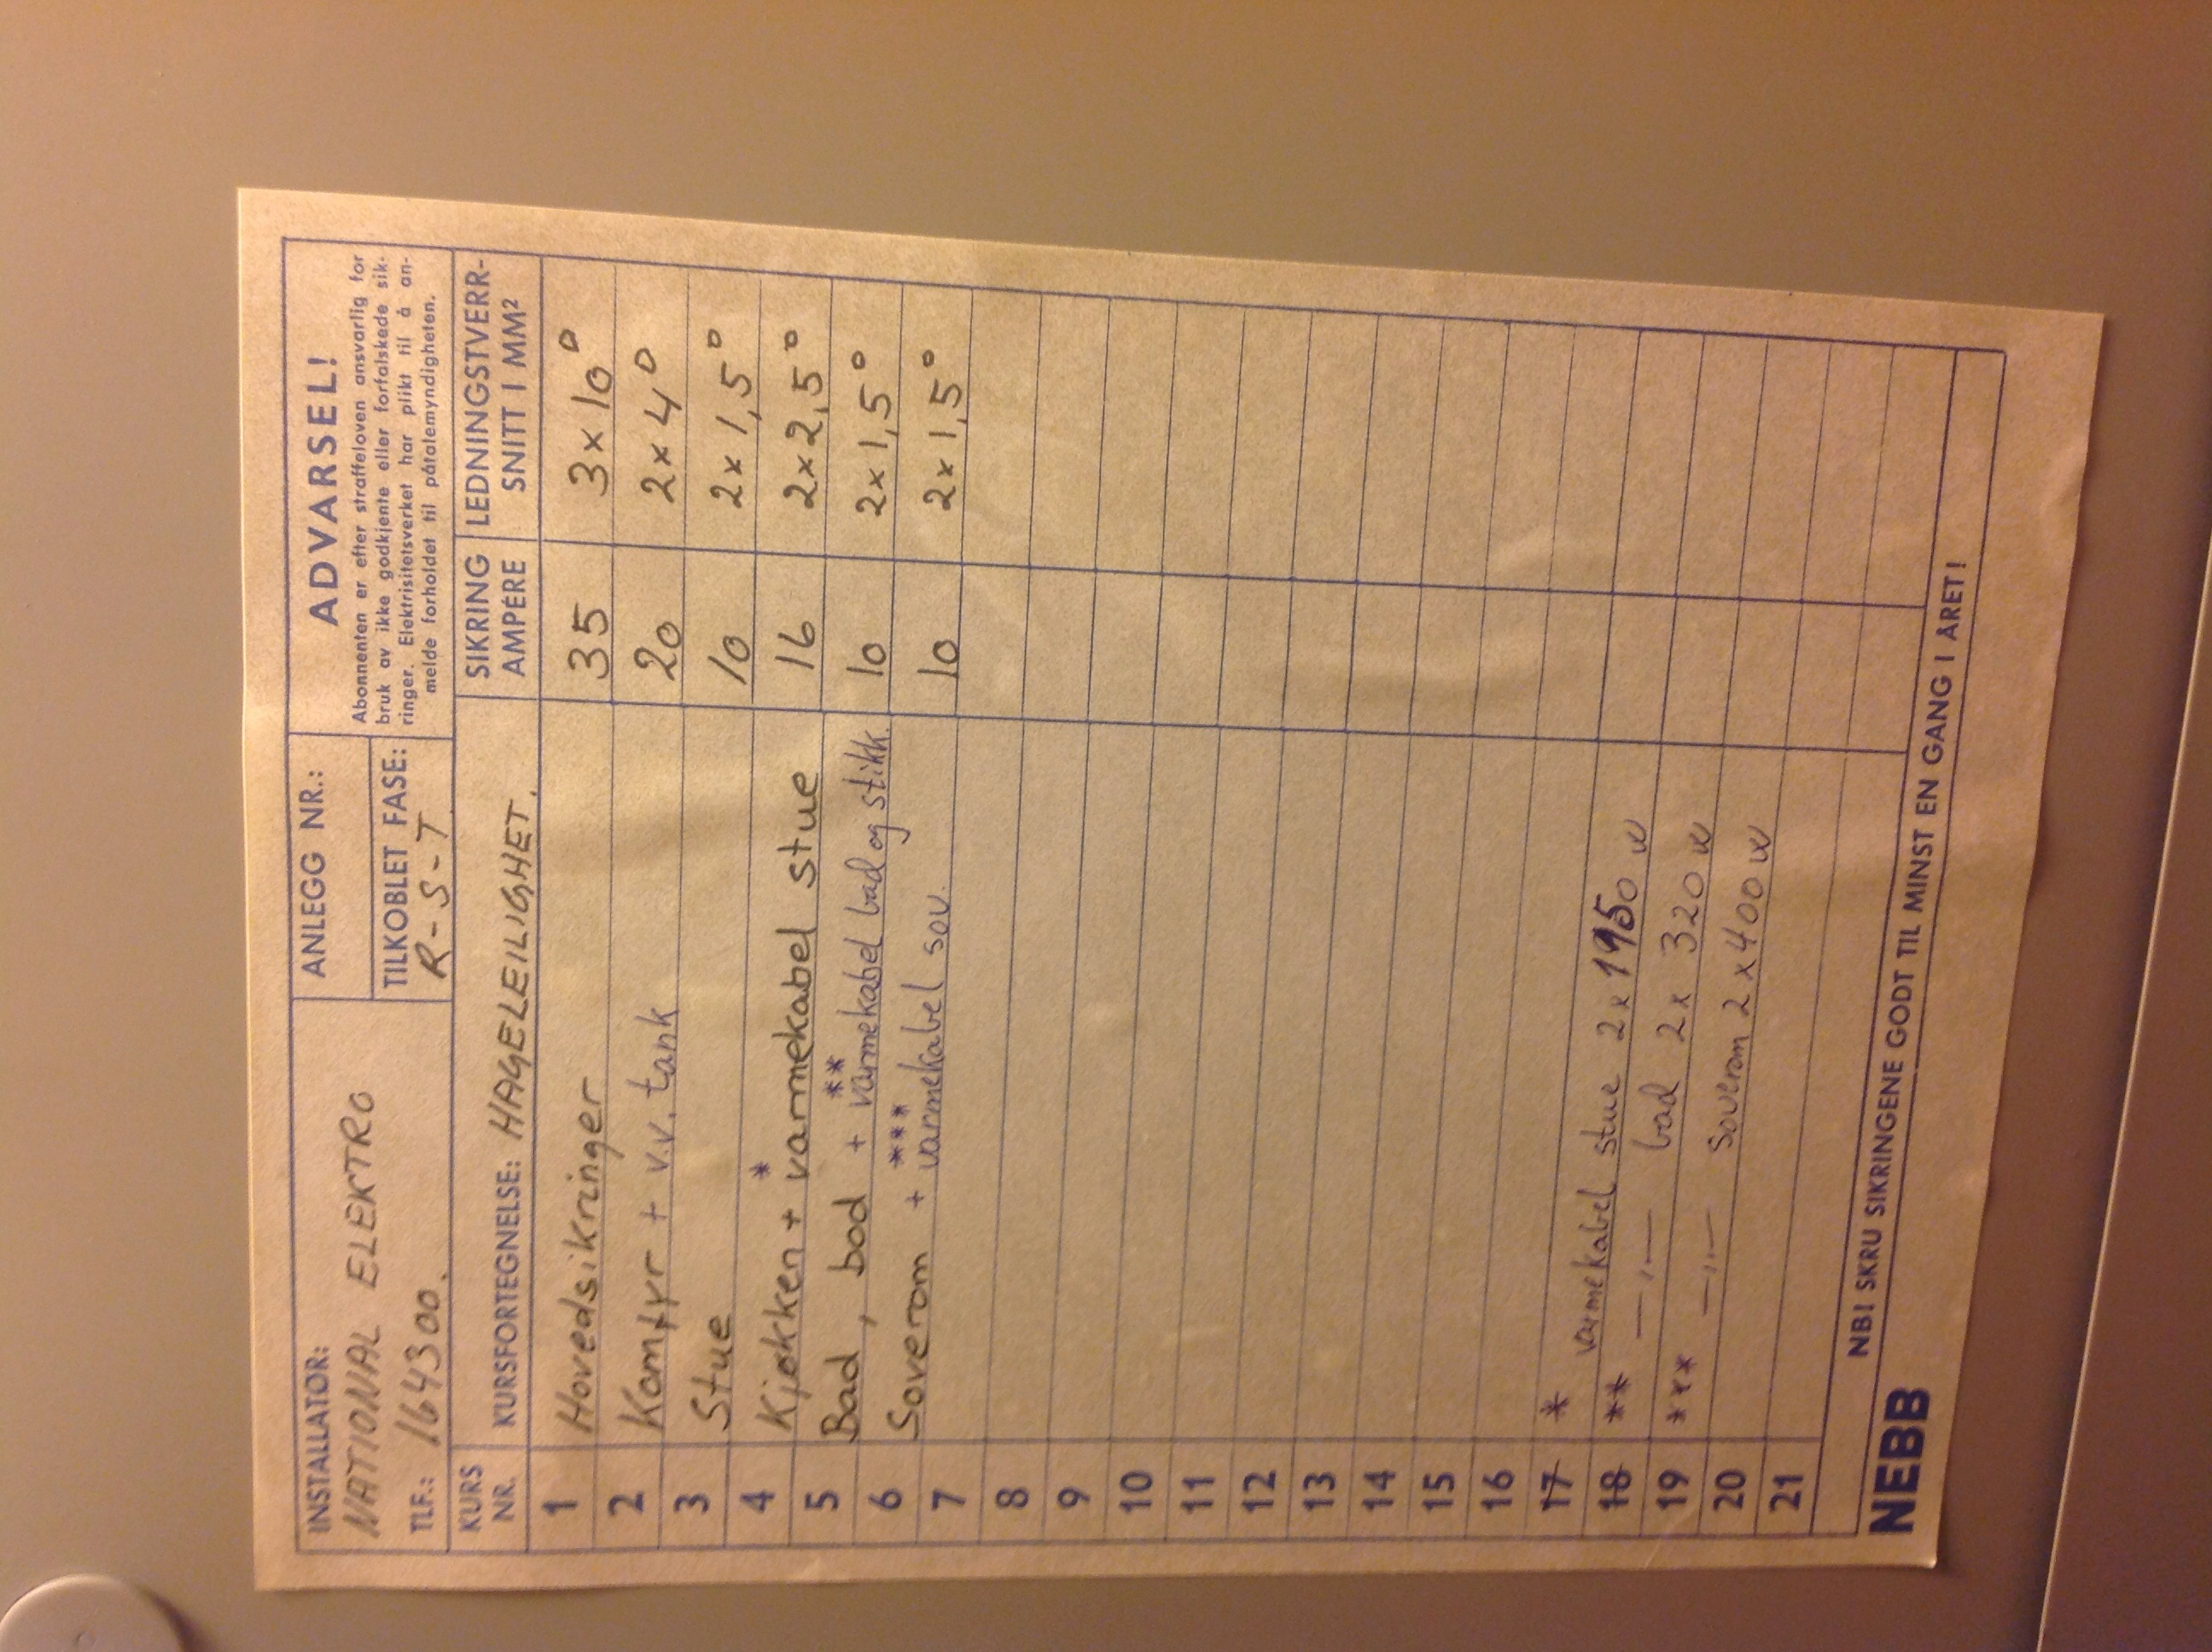 INSTALLATOR:
NATIONAL ELEKTRO
TLF.: 164300.
ANLEGG NR.:
TILKOBLET FASE:
R-S-T
ADVARSEL!
Abonnenten er efter straffeloven ansvarlig for
bruk av ikke godkjente eller forfalskede sik-
ringer. Elektrisitetsverket har plikt til å an-
melde forholdet til påtalemyndigheten.
KURS NR. KURSFORTEGNELSE: HAGELEILIGHET. SIKRING AMPÈRE LEDNINGSTVERR-SNITT I MM²
1 Hovedsikringer 35 3x10□
2 Komfyr + v.v. tank 20 2x4□
3 Stue 10 2x1,5□
4 Kjøkken + *varmekabel stue 16 2x2,5□
5 Bad, bod + **varmekabel bad og stikk. 10 2x1,5□
6 Soverom + ***varmekabel sov. 10 2x1,5□
7
8
9
10
11
12
13
14
15
16
17 * varmekabel stue 2x 1950 W
18 ** —"— bad 2x 320 W
19 *** —"— Soverom 2x400W
20
21
NB! SKRU SIKRINGENE GODT TIL MINST EN GANG I ÅRET!
NEBB